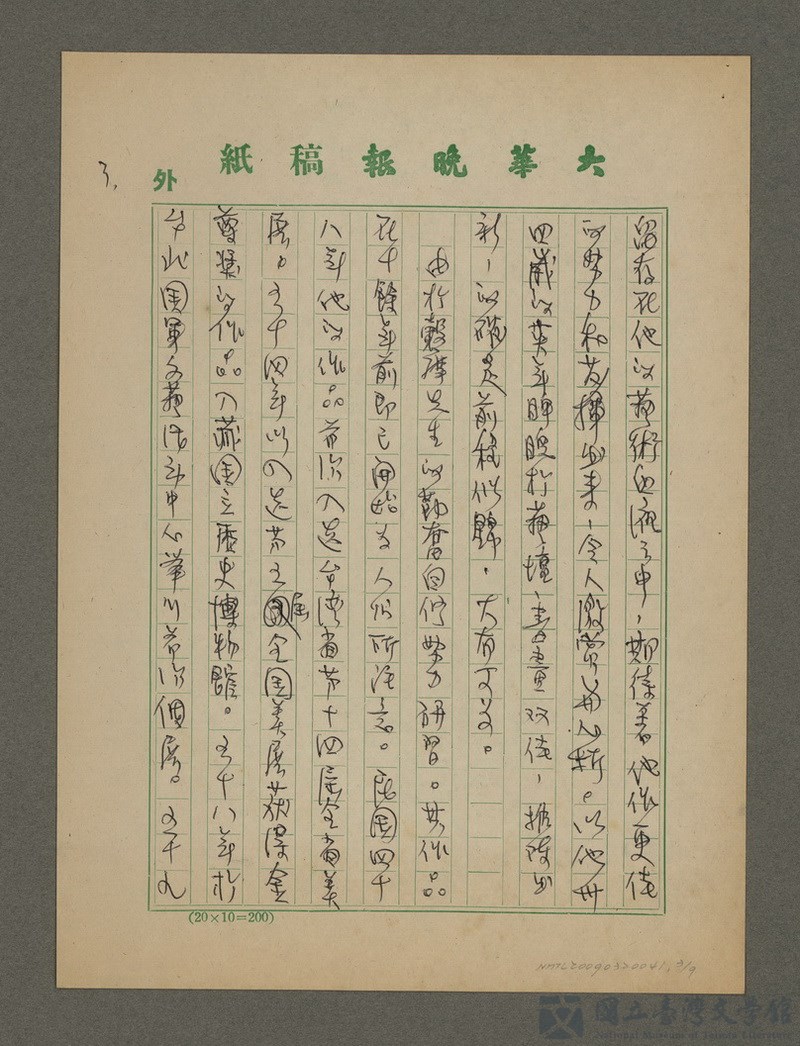 大華晚報稿紙
外
3.
留存在他的藝術血液之中,期待著他作更佳
的努力和發揮出來,令人激賞無斯。以他卅
四歲的英年睥睨於藝壇,書畫双佳,推陳出
新,的確是前程似錦,大有可為。
由於先生的勤奮自修努力研習。其作品
在十餘年前即已開始為人们所注意。民國四十
八年他的作品首次入选台湾省第十四屆全省美
展。五十四年以入选第五屆全国美展获得金
尊獎的作品入藏国立歷史博物館。五十八年於
台北国軍文藝活动中心舉行首次個展。五十九
(20×10=200)
NMTL20090320041, 3/9
國立臺灣文學館
National Museum of Taiwan Literature